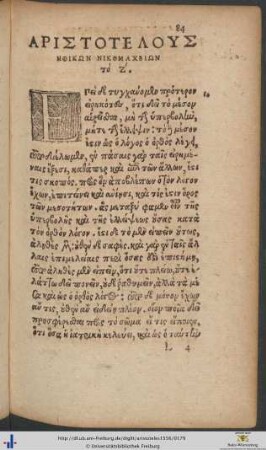 84
ΑΡΙΣΤΟΤΕΛΟΥΣ
ΗΘΙΚΩΝ ΝΙΚΟΜΑΧΕΙΩΝ
τὸ Ζ.
ΕΠεὶ δὲ τυγχάνομεν πρότερον
εἰρηκότες, ὅτι δεῖ τὸ μέσον
αἱρεῖσθαι, μὴ τὴν ὑπερβολὴν,
μήτε τὴν ἔλλειψιν· τὸ δὲ μέσον
ἐστὶν ὡς ὁ λόγος ὁ ὀρθὸς λέγει,
διέλωμεν. ἐν πάσαις γὰρ ταῖς εἰρημέ-
ναις ἕξεσι, καθάπερ καὶ τῶν ἄλλων, ἐστί
τις σκοπὸς, πρὸς ὃν ἀποβλέπων ὁ τὸν λόγον
ἔχων, ἐπιτείνει καὶ ἀνίησι, καί τις ἐστὶν ὅρος
τῶν μεσοτήτων, ἃς μεταξύ φαμεν εἶναι τῆς
ὑπερβολῆς καὶ τῆς ἐλλείψεως οὔσας κατὰ
τὸν ὀρθὸν λόγον. ἔστι δὲ τὸ μὲν εἰπεῖν οὕτως,
ἀληθὲς μὲν, οὐθὲν δὲ σαφές. καὶ γὰρ ἐν ταῖς ἄλ-
λαις ἐπιμελείαις περὶ ὅσας ἐστὶν ἐπιστήμη,
ἀληθὲς μὲν εἰπεῖν, ὅτι οὔτε πλείω, οὔτε ἐ-
λάττω δεῖ πονεῖν, οὐδὲ ῥαθυμεῖν, ἀλλὰ τὰ μέ-
σα καὶ ὡς ὁ ὀρθὸς λόγος· δὲ μόνον ἔχων
ἄν τις, οὐθὲν ἂν εἰδείη πλέον. οἷον ποῖα δεῖ
προσφέρεσθαι πρὸς τὸ σῶμα εἴ τις εἴποιεν,
ὅτι ὅσα ἡ ἰατρικὴ κελεύει, καὶ ὡς ὁ ταύτην
L 4
http://dl.ub.uni-freiburg.de/diglit/aristoteles1530/0175
© Universitätsbibliothek Freiburg